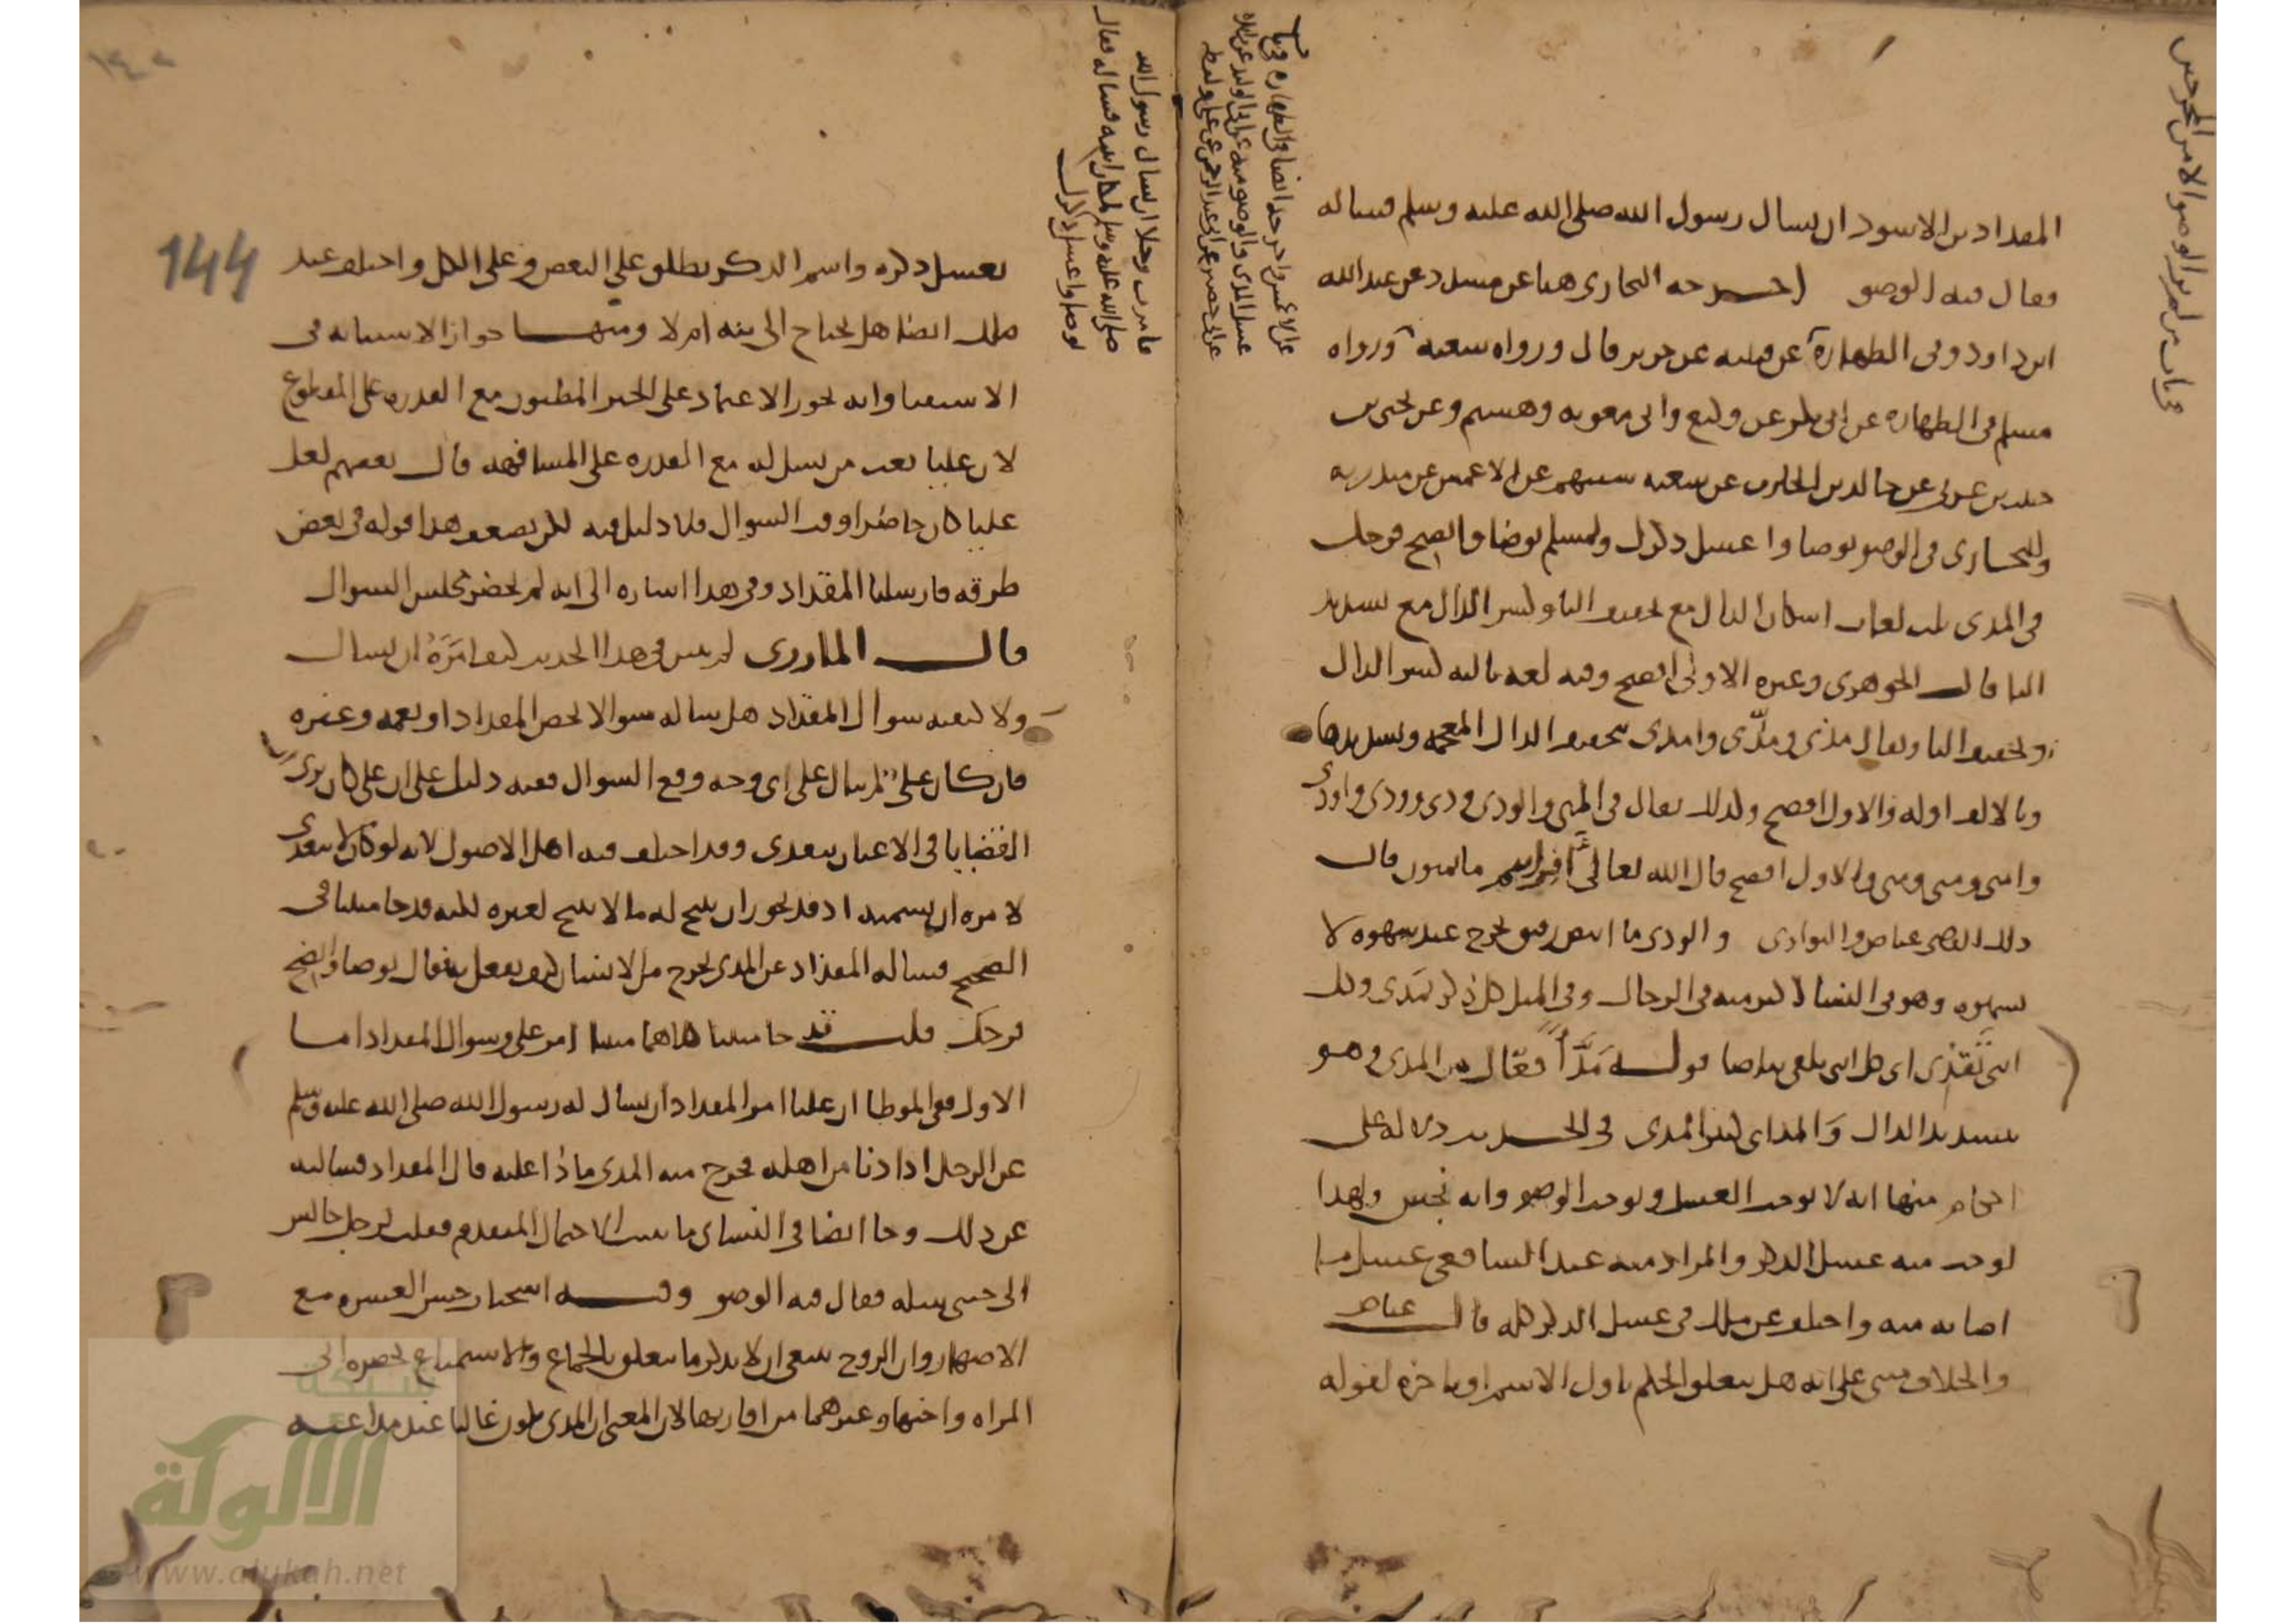 المقداد بن الاسود ان يسال رسول الله صلى الله عليه وسلم فساله
فقال فيه الوضو اخرجه البخارى هنا عن مسدد عن عبد الله
ابن داود وفى الطهارة عن قتيبه عن جرير قال ورواه شعبه ورواه
مسلم فى الطهاره عن ابى بكر عن وكيع وابى معويه وهشيم وعن يحيى بن
حبيب بن عربى عن خالد بن الحارث عن شعبه ستتهم عن الاعمش عن منذر به
وللبخارى فى الوضو توضا واغسل ذكرك ولمسلم توضا وانضح فرجك
فى المذى ثلث لغات اسكان الذال مع تخفيف اليا وكسر الذال مع تشديد
اليا قال الجوهرى وغيره الاولى افصح وفيه لغه ثالثه كسر الذال
وتخفيف اليا ويقال مذى ومذّى وامذى بتخفيف الذال المعجمه وتشديدها
وبالالف اوله والاول افصح وكذلك يقال فى المنى والودى ودى وودى واودى
وامنى ومنى ومنى والاول افصح قال الله تعالى افرايتم ما تمنون قال
ذلك القاضى عياض والنواوى والودى ما ابيض رقيق يخرج عند شهوه لا
بشهوه وهو فى النسا اكثر منه فى الرجال وفى المثل كل ذكر يمذى وكل
انثى تقذى اى كل انثى تلقى بياضا قوله مَذَّاً فعّال من المذى وهو
بتشديد الذال والمذاى كثير المذى فى الحديث دلاله على
احكام منها انه لا يوجب الغسل ويوجب الوضو وانه نجس ولهذا
اوجب منه غسل الذكر والمراد منه عند الشافعى غسل ما
اصابه منه واختلف عن ملك فى غسل الذكر كله قال عياض
والخلاف مبنى على انه هل يتعلق الحكم باول الاسم او باخره لقوله
باب من لم ير الوضو الا من المخرجين
عن الاعمش واخرجه ايضا فى الطهاره فى باب
غسل المذى والوضو منه عن ابى الوليد عن زايده
عن ابى حصين عن ابى عبد الرحمن عن على ولفظه
فامرت رجلا ان يسال رسول الله
صلى الله عليه وسلم لمكان ابنته فساله فقال
توضا واغسل ذكرك
144
يغسل ذكره واسم الذكر يطلق على البعض وعلى الكل واختلف عند
ملك ايضا هل يحتاج الى نيه ام لا ومنها جواز الاستنابه فى
الاستفتا وانه يجوز الاعتماد على الخبر المظنون مع القدره على المقطوع
لان عليا بعث من يسل له مع القدره على المشافهه قال بعضهم لعل
عليا كان حاضرا وقت السوال فلا دليل فيه لكن يضعف هذا قوله فى بعض
طرقه فارسلنا المقداد وفى هذا اشاره الى انه لم يحضر مجلس السوال
قال المازرى لم يبين فى هذا الحديث كيف امَرَهُ ان يسال
ولا كيفيه سوال المقداد هل ساله سوالا يخص المقداد او يعمه وغيره
فان كان على لم يسال على اى وجه وقع السوال ففيه دليل على ان على كان يرى
القضايا فى الاعيان تتعدى وقد اختلف فيه اهل الاصول لانه لو كان لا يتعدى
لامره ان يسميه اذ قد يجوز ان يبيح له ما لا يبيح لغيره لكنه قد جا مبينا فى
الصحيح فساله المقداد عن المذى يخرج من الانسان كيف يفعل به فقال توضا وانضح
فرجك قلت قد جا مبينا كلاهما امر على وسوال المقداد اما
الاول ففى الموطا ان عليا امر المقداد ان يسال له رسول الله صلى الله عليه وسلم
عن الرجل اذا دنا من اهله فخرج منه المذى ماذا عليه قال المقداد فسالته
عن ذلك وجا ايضا فى النساى ما يثبت الاحتمال المتقدم فقلت لرجل جالس
الى جنبى سله فقال فيه الوضو وفيه استحباب حسن العشره مع
الاصهار وان الزوج ينبغى ان لا يذكر ما يتعلق بالجماع والاستمتاع بحضره ابى
المراه واختها وغيرهما من اقاربها لان المعنى ان المذى يكون غالبا عند مداعبه
شبكة
الالوكة
www.alukah.net